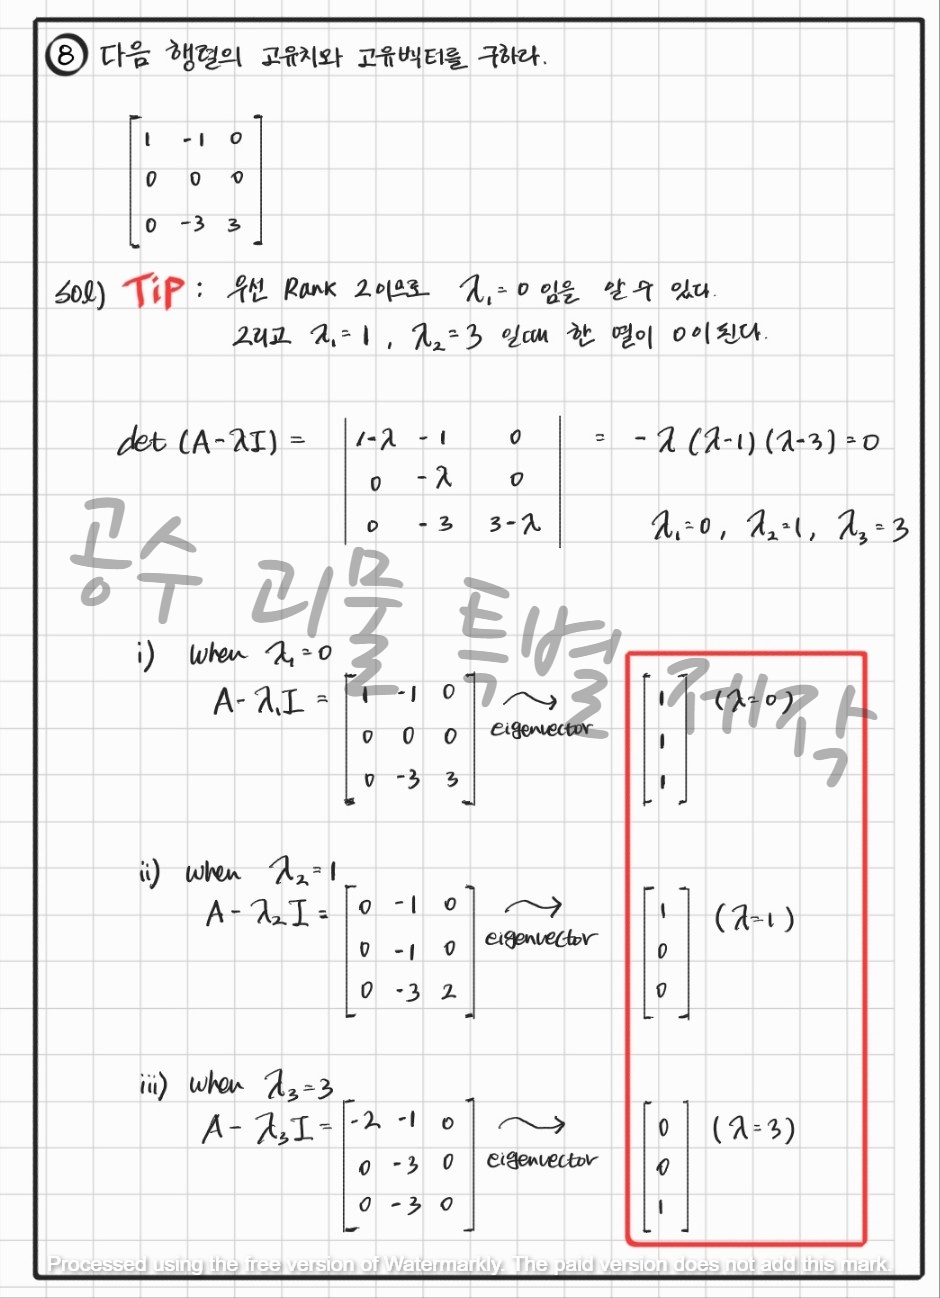 ⑧ 다음 행렬의 고유치와 고유벡터를 구하라.
1 -1 0
0 0 0
0 -3 3
sol) TiP : 우선 Rank 2이므로 λ₁=0 임을 알 수 있다.
그리고 λ₁=1, λ₂=3 일때 한 열이 0이 된다.
det (A-λI) = | 1-λ -1 0 | = -λ(λ-1)(λ-3)=0
0 -λ 0
0 -3 3-λ λ₁=0, λ₂=1, λ₃=3
공수 괴물 특별 제작
i) when λ₁=0
A-λ₁I = [1 -1 0] eigenvector [1] (λ=0)
0 0 0 1
0 -3 3 1
ii) when λ₂=1
A-λ₂I= [0 -1 0] eigenvector [1] (λ=1)
0 -1 0 0
0 -3 2 0
iii) when λ₃=3
A-λ₃I= [-2 -1 0] eigenvector [0] (λ=3)
0 -3 0 0
0 -3 0 1
Processed using the free version of Watermarkly. The paid version does not add this mark.